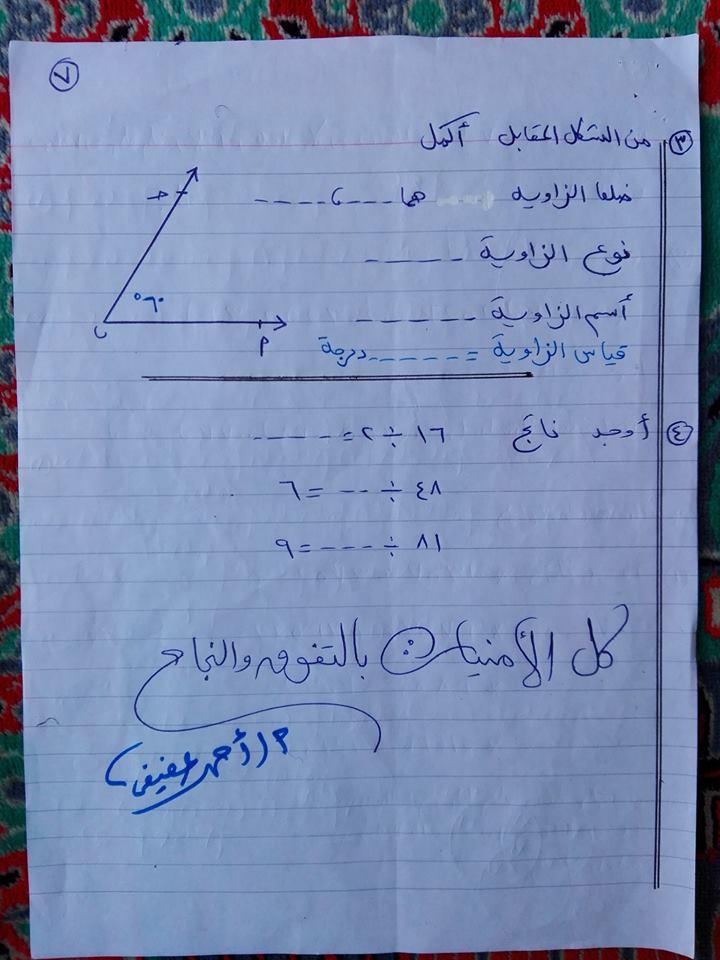 ٧
٣ من الشكل المقابل أكمل
ضلعا الزاوية ---- هما ---- ، ----
نوع الزاوية -----
أسم الزاوية -----
قياس الزاوية = ----- درجة
ج
٦٠°
ب
أ
٤ أوجد ناتج ١٦ ÷ ٢ = -----
٤٨ ÷ --- = ٦
٨١ ÷ --- = ٩
كل الأمنيات بالتفوق والنجاح
أ / أحمد عفيفى